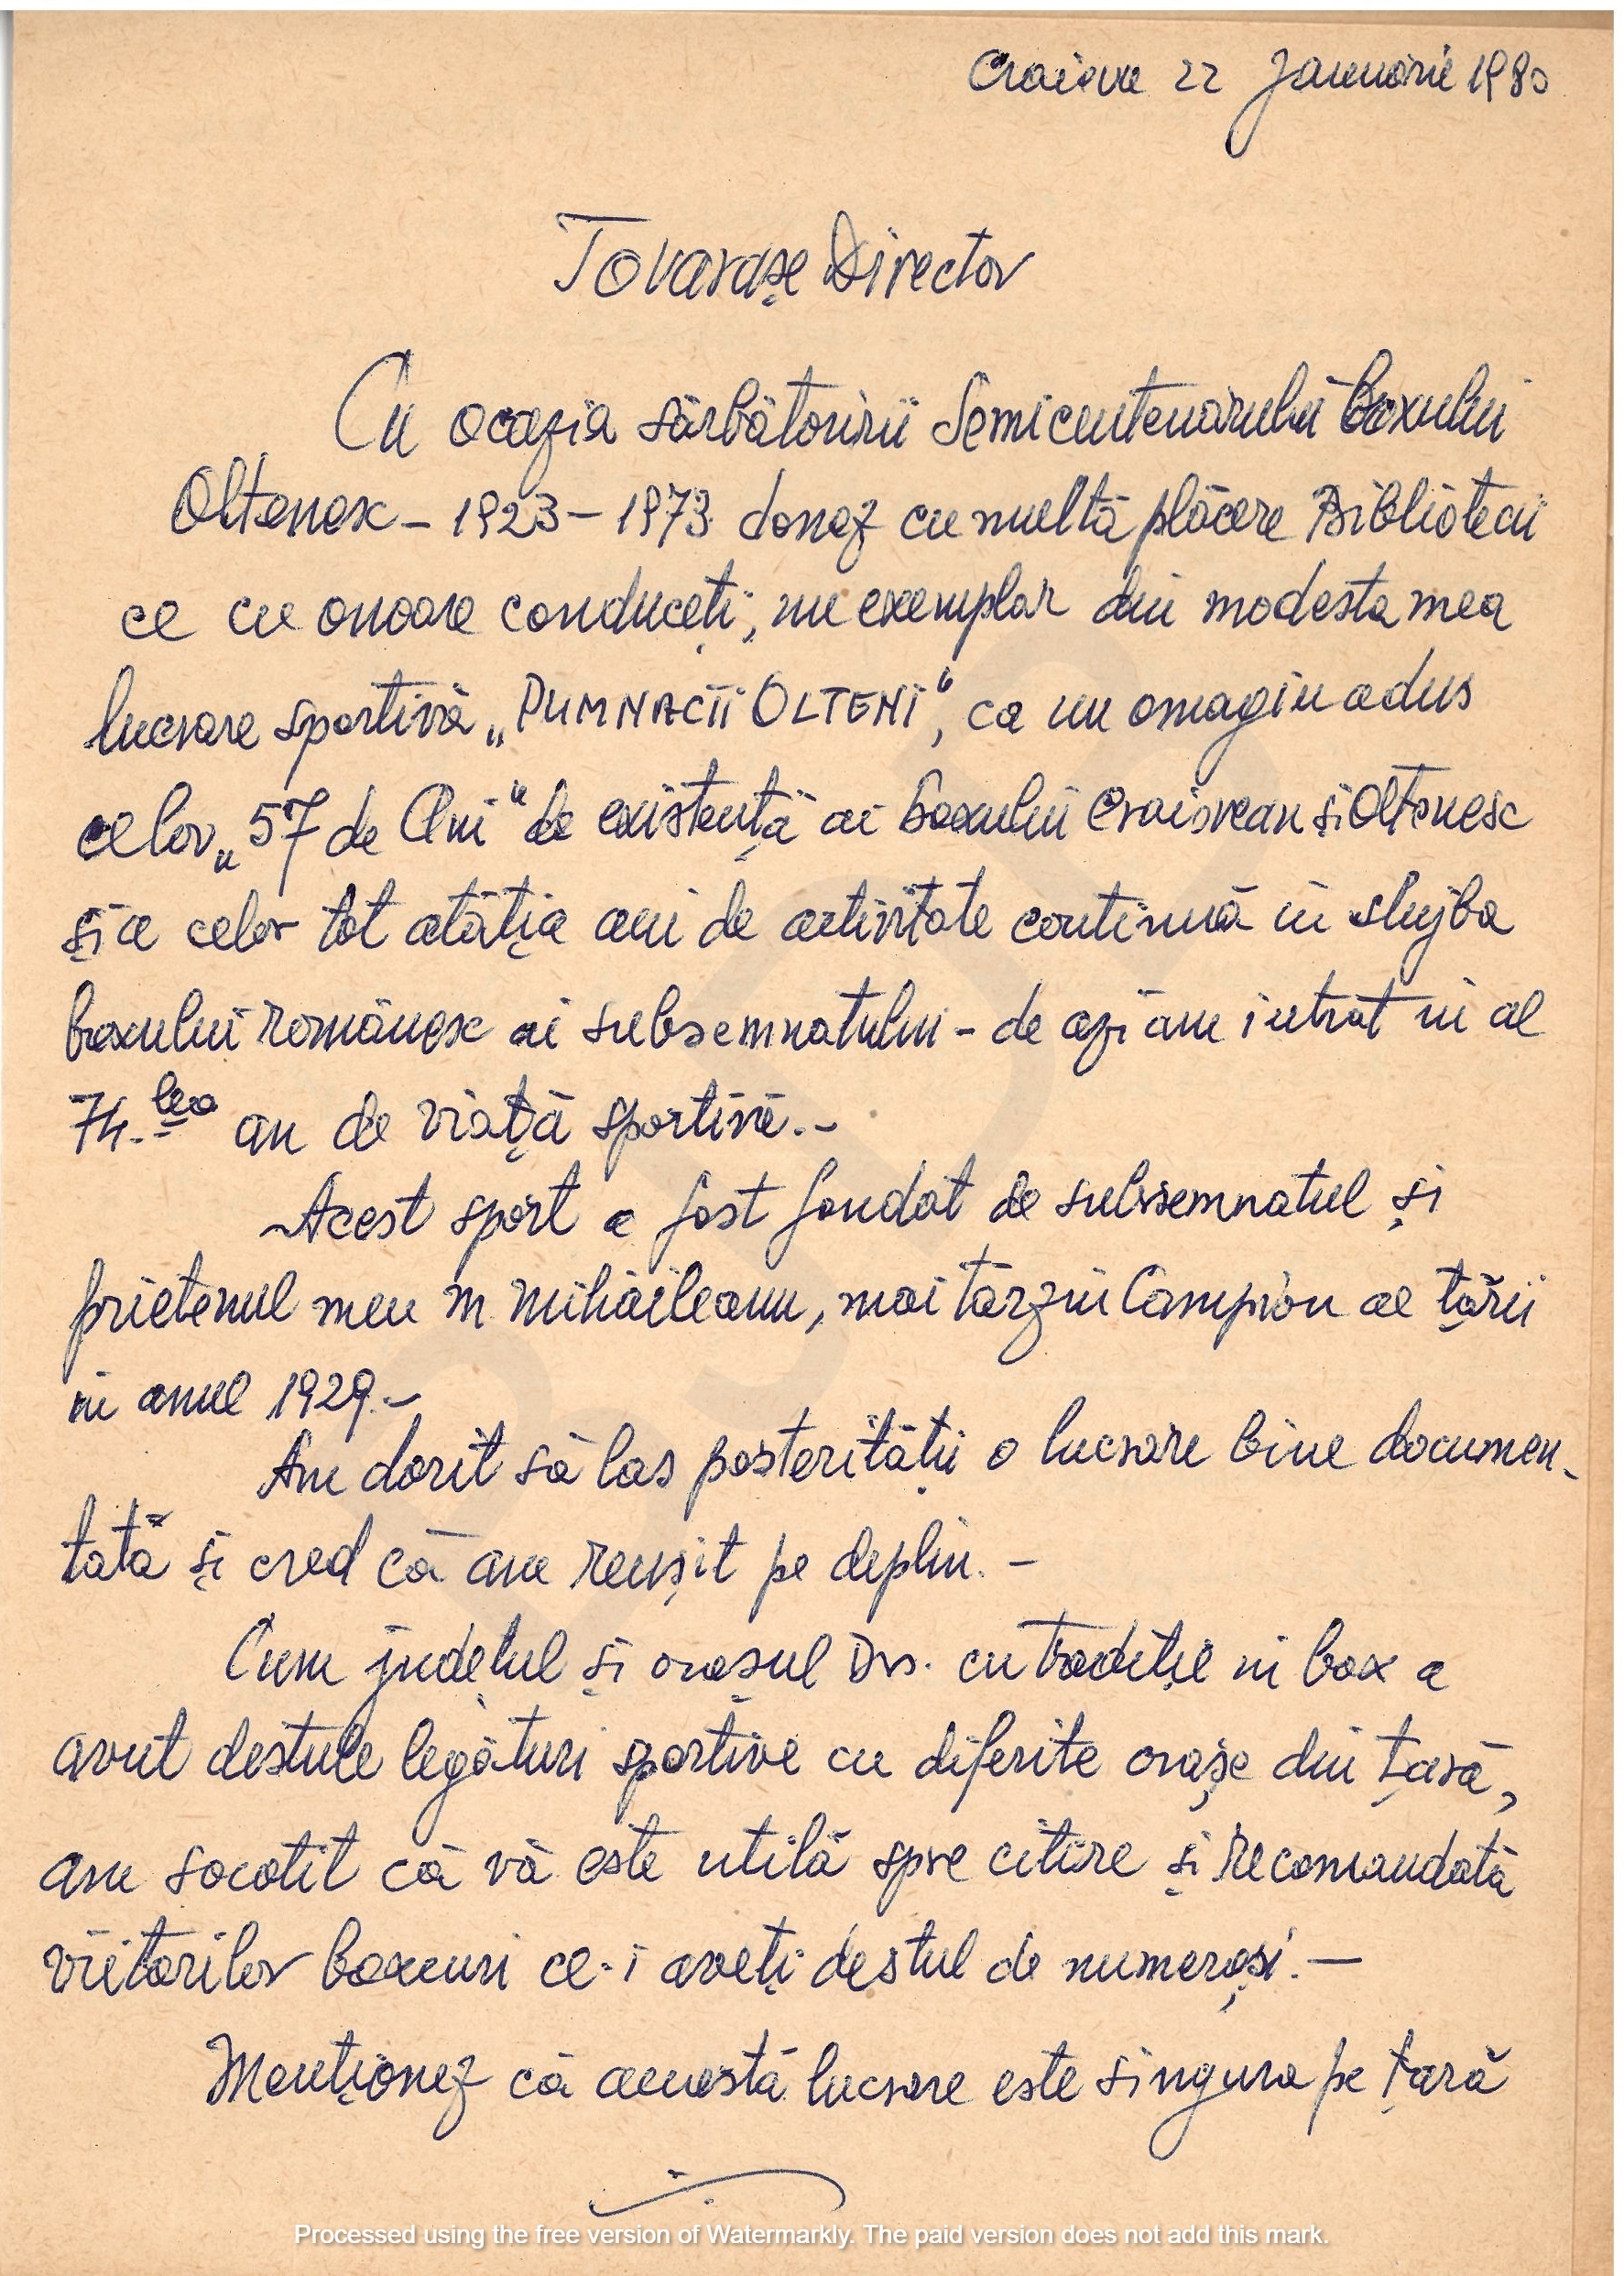 Craiova 22 Januarie 1980
Tovarașe Director
Cu ocazia sărbătoririi Semicentenarului boxului
Oltenesc – 1923 – 1973 donez cu multă plăcere Bibliotecii
ce cu onoare conduceți, un exemplar din modesta mea
lucrare sportivă „PUMNACII OLTENI“, ca un omagiu adus
celor „57 de Ani“ de existență ai boxului Craiovean și Oltenesc
și a celor tot atâția ani de activitate continuă în slujba
boxului românesc ai subsemnatului – de azi am intrat în al
74.lea an de viață sportivă.–
Acest sport a fost fondat de subsemnatul și
prietenul meu M Mihăileanu, mai târziu Campion al țării
în anul 1929.–
Am dorit să las posterității o lucrare bine documen-
tată și cred că am reușit pe deplin. –
Cum județul și orașul Dvs. cu tradiție în box a
avut destule legături sportive cu diferite orașe din țară,
am socotit că vă este utilă spre citire și recomandată
viitorilor boxeuri ce-i aveți destul de numeroși. –
Menționez că această lucrare este singura pe țară
BJDB
Processed using the free version of Watermarkly. The paid version does not add this mark.